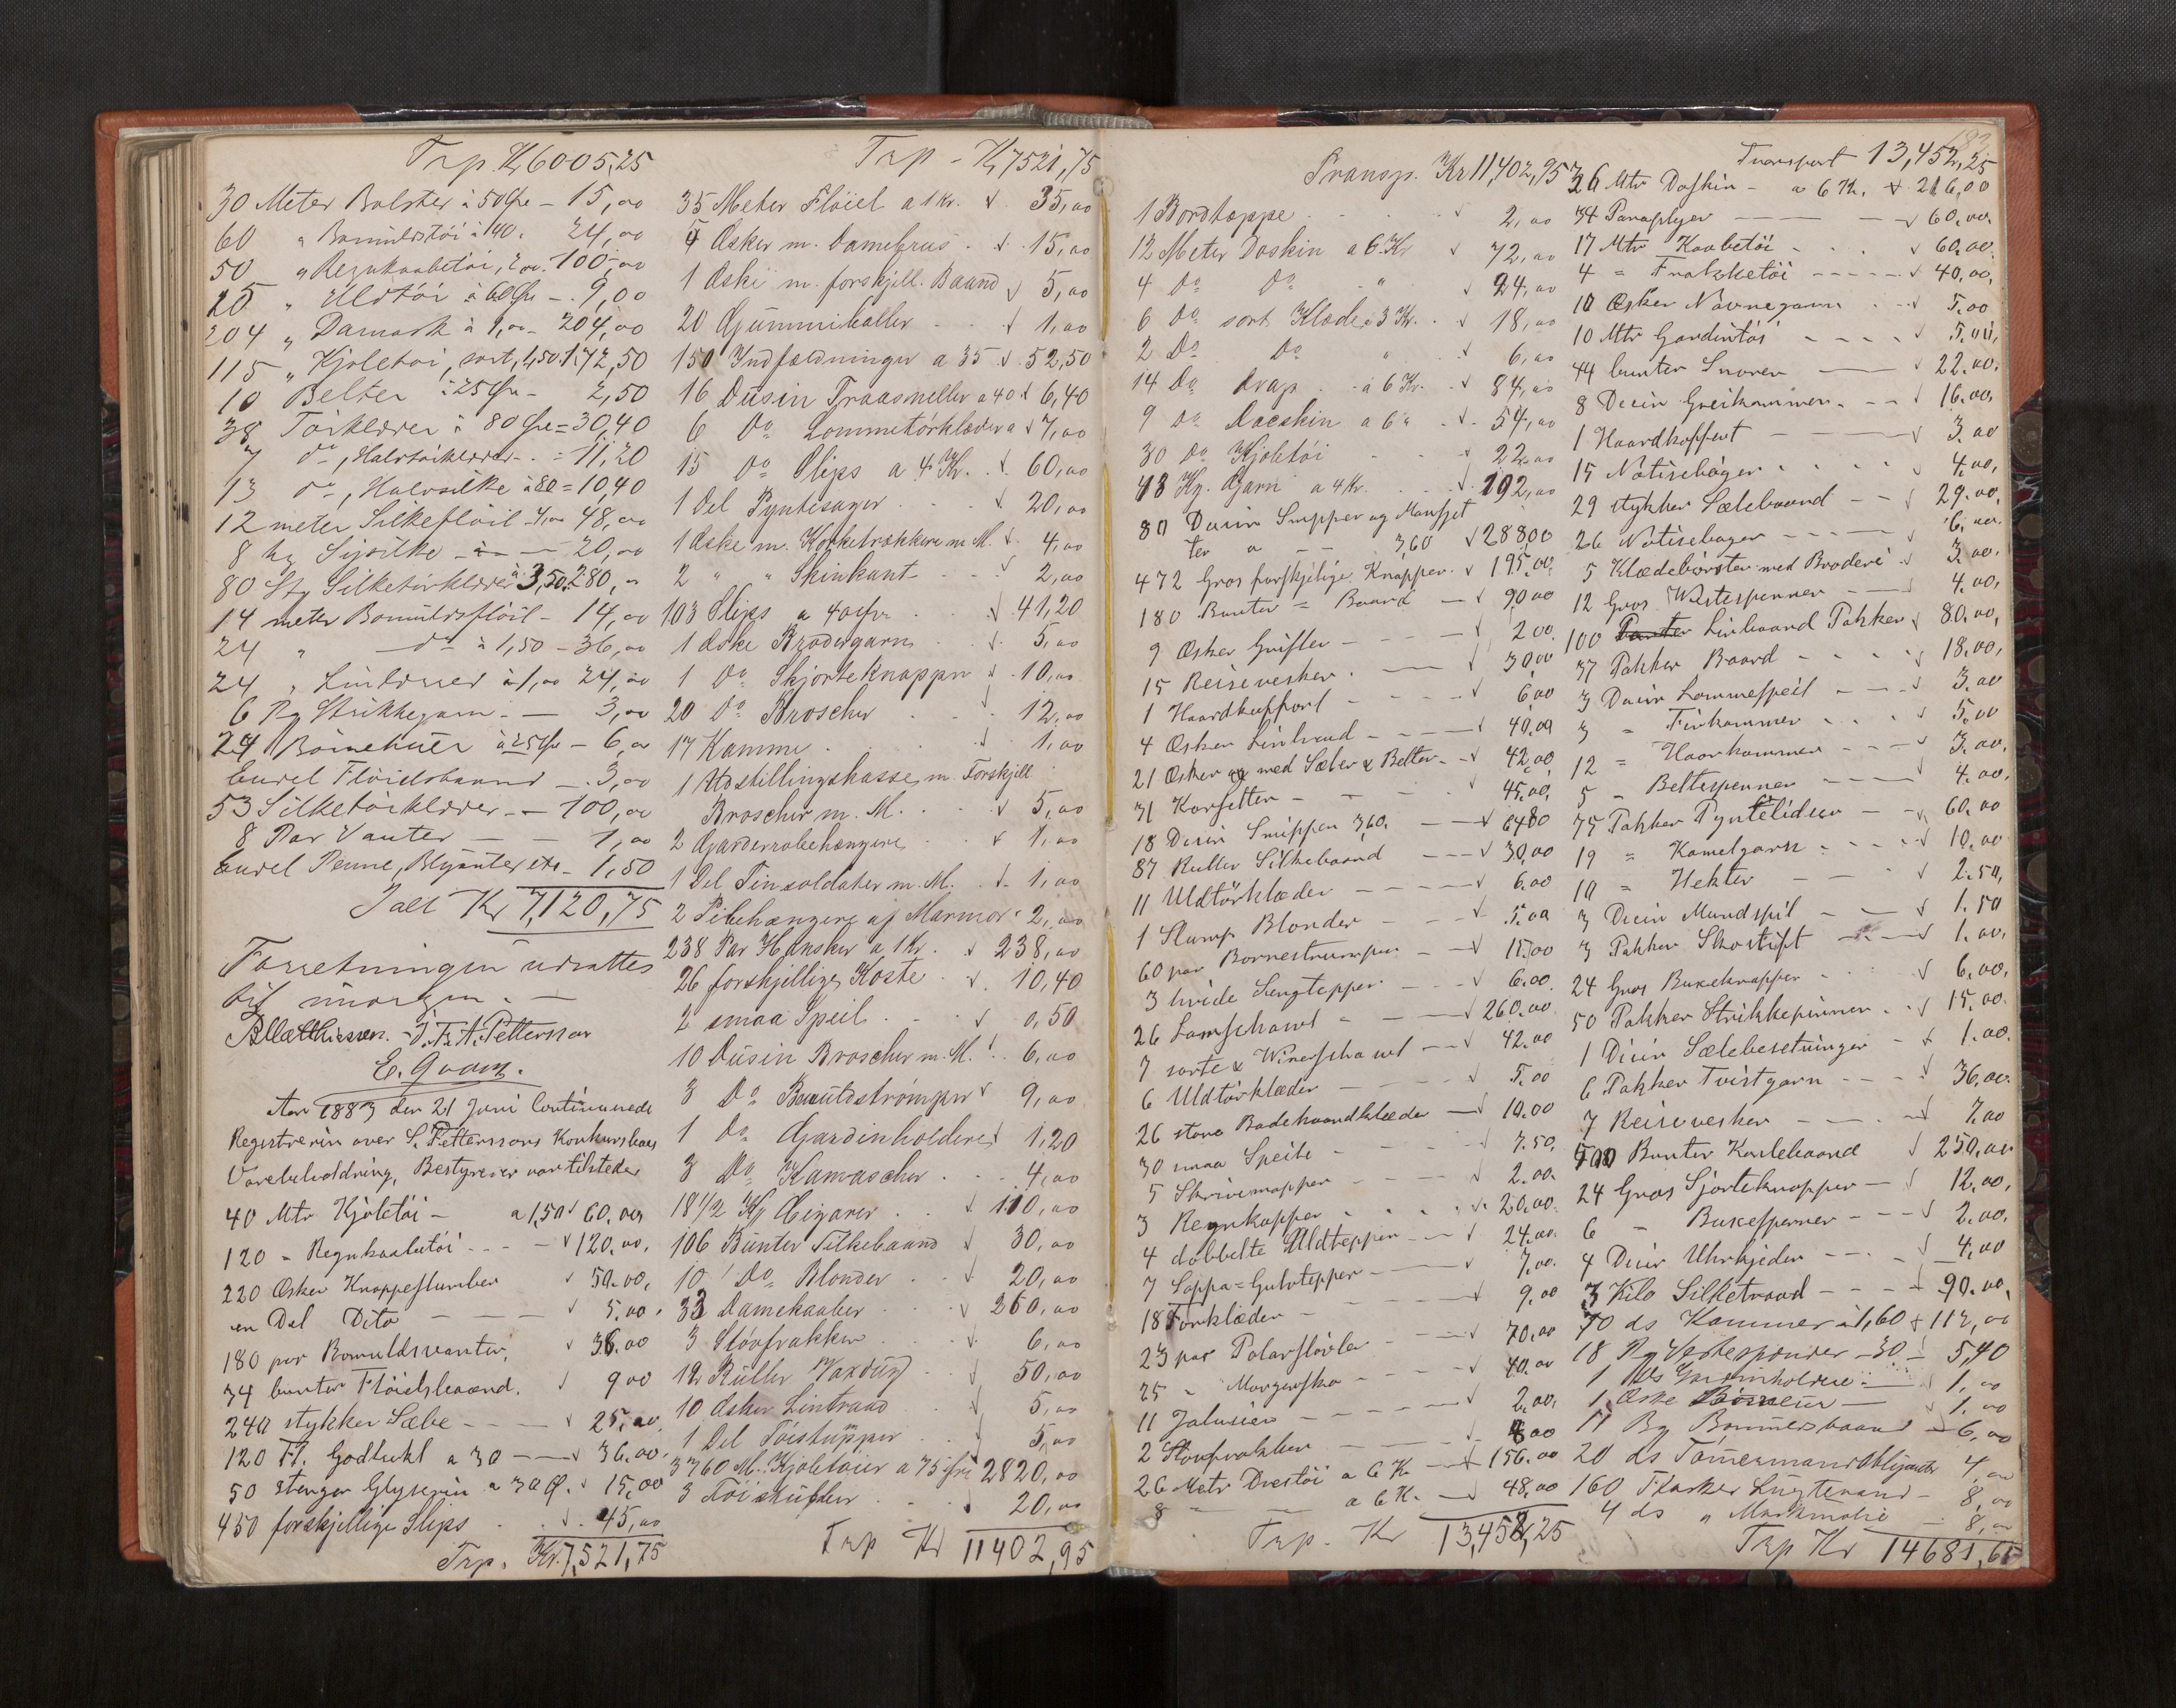 Trp. Kr 6005,25
30 Meter Bolster à 50 Øre - 15,00
60 " Bomuldstöi à 40. 24,00
50 " Regnkaabetöi, 2,00. 100,00
15 " Uldtöi à 60 Øre - 9,00
204 " Damask à 1,00 - 204,00
115 " Kjoletöi, sort, 1,50. 172,50
10 Belter à 25 Øre - 2,50
38 Törklæder à 80 Øre = 30,40
7 do, Halvtörklæder - = 11,20
13 do, Halvsilke à 80 = 10,40
12 meter Silkeflöil - 4,00 48,00
8 kg Sysilke - - 20,00
80 Stg Silketörklæder à 3,50. 280,00
14 meter Bomuldsflöil - 14,00
24 " do à 1,50 - 36,00
24 " Linlærred à 1,00 24,00
6 Pg Strikkegarn - 3,00
24 Börnehuer à 25 Øre - 6,00
Endel Flöielsbaand - 3,00
53 Silketörklæder - 100,00
8 Par Vanter - - 1,00
Endel Penne, Blyanter etc - 1,50
Ialt Kr 7,120,75
Forretningen udsattes
til imorgen. -
J. F. A. Petterson
E. Qvam.
Aar 1883 den 21 Juni Continuerede
Registrerin over S. Petterssons Konkursboes
Varebeholdning, Bestyreren var tilstede
40 Mtr Kjöletöi - a 1,50 60.00
120 - Regnkaabetöi - - - 120.00.
220 Æsker Knappeslumber 50.00.
en Del Dito - - - 5.00.
180 par Bomuldsvanter, 36.00
34 bunter Flöielsbaand. 9 00
240 stykker Sæbe - - - 25.00.
120 Fl. Godlukt a 30 - 36.00.
50 stenger Glyserin a 30 Ø. 15,00
450 forskjellige Slips 45,00
Trp. Kr. 7,521,75
Trp - Kr 7521,75
35 Meter Flöiel a 1 Kr. 35,00
4 Æsker m. Damekrus. 15,00
1 Æske m. forskjell. Baand 5,00
20 Gummiballer 1,00
150 Indfældninger a 35 52,50
16 Dusin Traasneller a 40 6,40
6 Do Lommetörklæder a 7,00
15 Do Slips a 4 Kr. 60,00
1 Del Pyntesager 20,00
1 Æske m. Korketrækkere m. M. 4,00
2 " " Skinkant 2,00
103 Slips a 40 Øre 41,20
1 Æske Brodergarn 5,00
1 Do Skjorteknapper 10,00
20 Do Broscher 12,00
17 Kamme 1,00
1 Udstillingskasse m. Forskjell
Broscher m. M. 5,00
2 Garderobehængere 1,00
1 Del Tinsoldater m. M. 1,00
2 Pibehængere af Marmor 2,00
238 Par Hansker a 1 Kr. 238,00
26 forskjellige Koste 10,40
2 smaa Speil 0,50
10 Dusin Broscher m. M. 6,00
3 Do Bomuldströmper 9,00
1 Do Gardinholdere 1,20
3 Do Kamascher 4,00
18 1/2 Kg Cigarer 110,00
106 Bunter Silkebaand 30,00
10 Do Blonder 20,00
33 Damekaaber 260,00
3 Stövfrakker 6,00
12 Ruller Voxdug 50,00
10 Æsker Lintraad 5,00
1 Del Töistupper 5,00
3760 M. Kjoletöier a 75 Øre 2820,00
3 Töiskuffer 20,00
Trp Kr 11402,95
Transp. Kr 11,402,95
1 Bordtæppe 2,00
12 Meter Doskin a 6 Kr 72,00
4 Do Do " 24,00
6 Do sort Klæde a 3 Kr. 18,00
2 Do Do " 6,00
14 Do Drap a 6 Kr. 84,00
9 Do Doeskin a 6 " 54,00
30 Do Kjoletöi 22,00
48 Kg. Garn a 4 Kr. 192,00
80 Dusin Snipper og Mansjet
ter a - - 3,60 288 00
472 Gros forskjelige Knapper 195,00
180 Bunter = Baand - 90 00
9 Æsker Grifler - - - 2 00.
15 Reisevesker 30 00
1 Haardkuffert - - 6,00
4 Æsker Lintraad - - 40,00
21 Æsker med Sæler & Belter - 42,00
31 Korsetter - - - 45,00,
18 Dusin Snipper 3,60. - 64 80
87 Ruller Silkebaand - - 30,00
11 Uldtörklæder - - - 6.00
1 Slump Blonder - - 5.00
60 par Bornestrømper - 15.00
3 hvide Sengtepper - - 6.00
26 Lamschawl - - 260.00
7 sorte & Winerschawl - 42.00
6 Uldtörklæder - - 5.00
26 store Badehaandklæder - 10.00
30 smaa Speile - - - 7.50.
5 Skrivemapper - - 2.00.
3 Regnkapper 20.00.
4 dobbelte Uldtepper - 24.00.
7 Loppa = Gulvtepper - 7.00.
18 Forklæder - 9.00
23 par Polarstövler - - 70.00
25 " Morgensko - - 40.00
11 Jalusier - - - 2.00.
2 Stövfrakker - - 4 00
26 Metr Drestöi a 6 Kr - 156.00
8 - a 6 K. - 48,00
Trp. Kr 13,452,25
Transport 13,452,25
36 Mtr Doskin - a 6 Kr. 216,00
34 Paraplyer - - - 60.00.
17 Mtr Kaabetöi - - 60,00.
4 = Frakketöi - - - 40,00,
10 Æsker Navnegarn 5.00
10 Mtr Gardintöi - - - 5.00,
44 bunter Snorer - 22.00.
8 Dusin Greikammer - - 16.00,
1 Haardkoffert - 3.00
15 Notisebøger 4.00,
29 stykker Sælebaand - - 29.00,
26 Notisebøger - - - 6.00
5 Klædebörster med Broderi 3.00.
12 Gros Westespenner - 4.00,
100 Linbaand Pakker 80.00,
37 Pakker Baand - - 18.00,
3 Dusin Lommespeil - - 3.00
3 = Finkammer 5.00
12 = Haarkammer - - 3.00.
5 - Beltespenner - 4.00,
75 Pakker Pyntelidser - 60.00
19 = Kamelgarn 10.00
10 = Hekter - - 2.50,
3 Dusin Mundspil - 1.50
3 Pakker Skostift - 1.00,
24 Gros Buxeknapper 6.00,
50 Pakker Strikkepinner 15.00.
1 Dusin Sælebesetninger 1.00.
6 Pakker Tvistgarn - - 36.00.
7 Reisevesker - - 7.00
500 Bunter Kantebaand 250.00
24 Gros Sjorteknapper - 12.00,
6 - Buxespenner - - 2.00.
4 Dusin Uhrkjeder - - 4.00
3 Kilo Silketraad - - - 90.00,
70 ds Kammer à 1,60 112,00
18 Pg Vestespender - 30 - 5,40
1 ds Gardinholdere - 1,00
1 Æske - 1,00
11 Bg Bommersbaand - 6,00
20 ds Tömermandsblyanter 4,00
160 Flasker Lugtevand - 8,00
4 ds " - 8,00
Trp Kr 14681,65